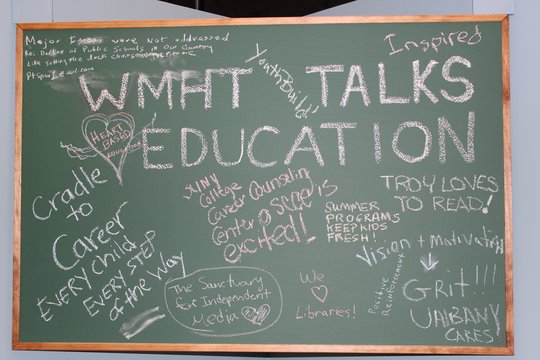 Major Issues were not addressed
Re: Decline of Public Schools in Our Country
Like Solving the
Inspired
YouthBuild!
WMHT TALKS
EDUCATION
HEART
BASED
EDUCATION
Cradle
to
Career
EVERY child
EVERY STEP
of the Way
College
Career Counseling
Center
excited!
SUMMER
PROGRAMS
KEEP KIDS
FRESH!
TROY LOVES
TO READ!
Vision + motivation
Positive
Reinforcement
Grit!!!
UAlBANY
CARES
The Sanctuary
for Independent
Media
We
♡
Libraries!